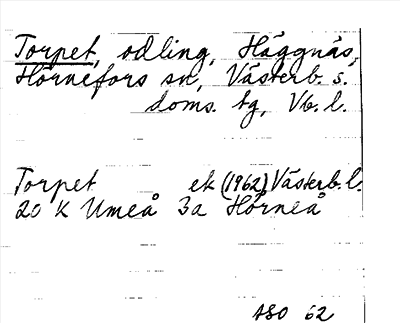 Torpet, odling, Häggnäs,
Hörnefors sn, Västerb. s.
doms. tg, Vb. l.
Torpet ek (1962) Västerb. l.
20 K Umeå 3a Hörneå
ASO 62